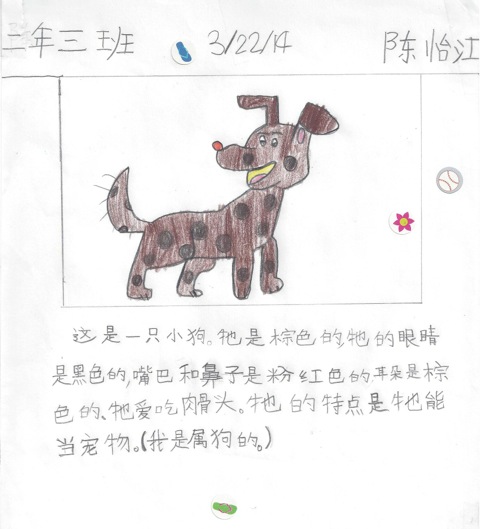 三年三班 3/22/14 陈怡江
这是一只小狗。牠是棕色的,牠的眼睛
是黑色的,嘴巴和鼻子是粉红色的.耳朵是棕
色的、牠爱吃肉骨头。牠的特点是牠能
当宠物。(我是属狗的。)